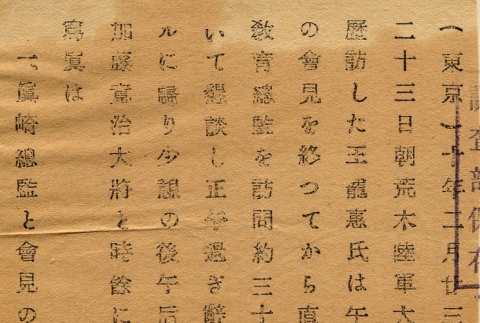 (東京)十年二月廿三
二十三日朝荒木陸軍大
歴訪した王寵惠氏は午
の會見を終つてから直
敎育總監を訪問約三十
いて懇談し正午過ぎ辭
ルに歸り少憩の後午后
加藤寬治大將と時餘に
寫眞は
一、眞崎總監と會見の
調査部保存